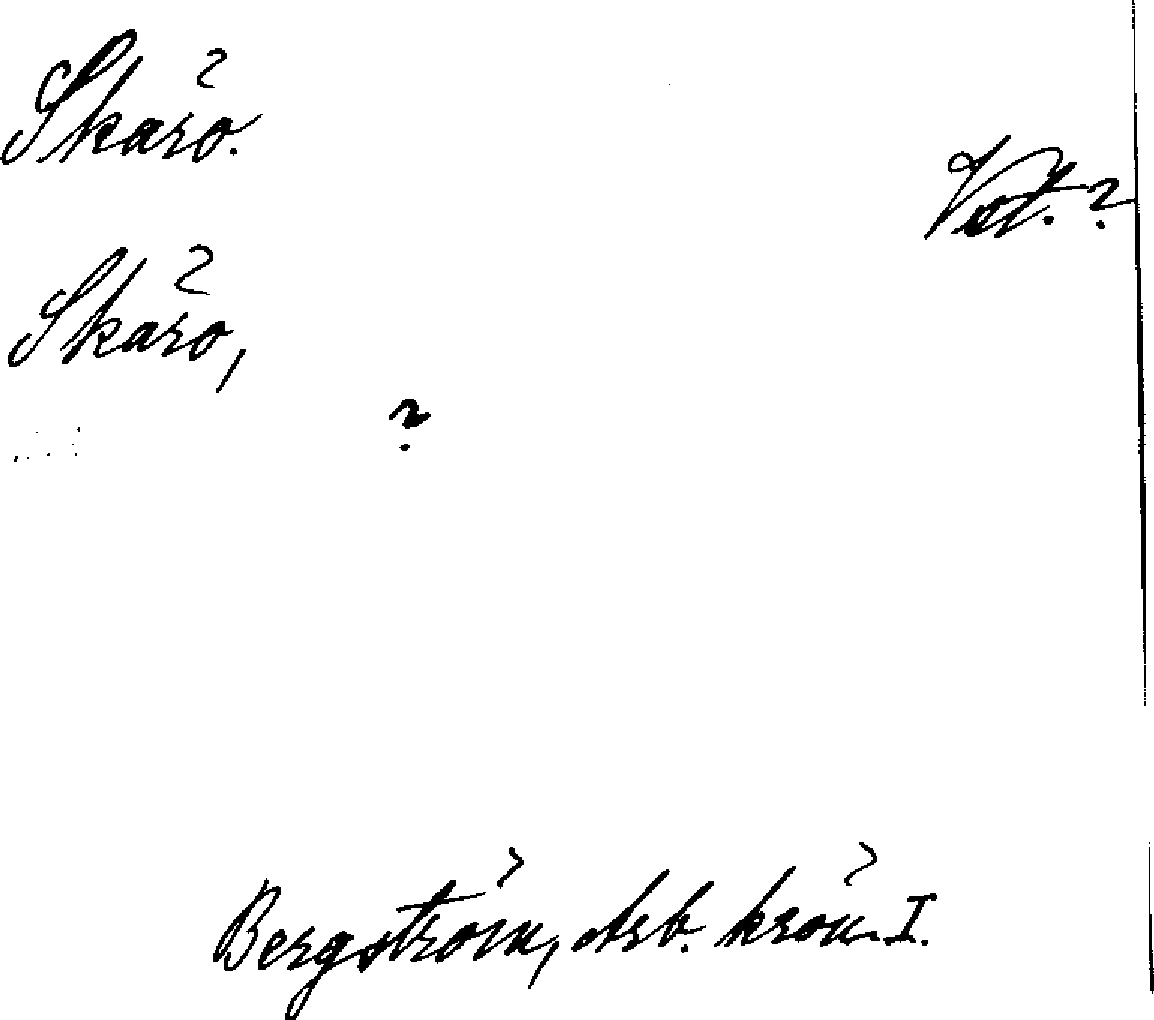 Skärö.
Vet. ?
Skärö,
?
Bergström, Arb. krön. I.